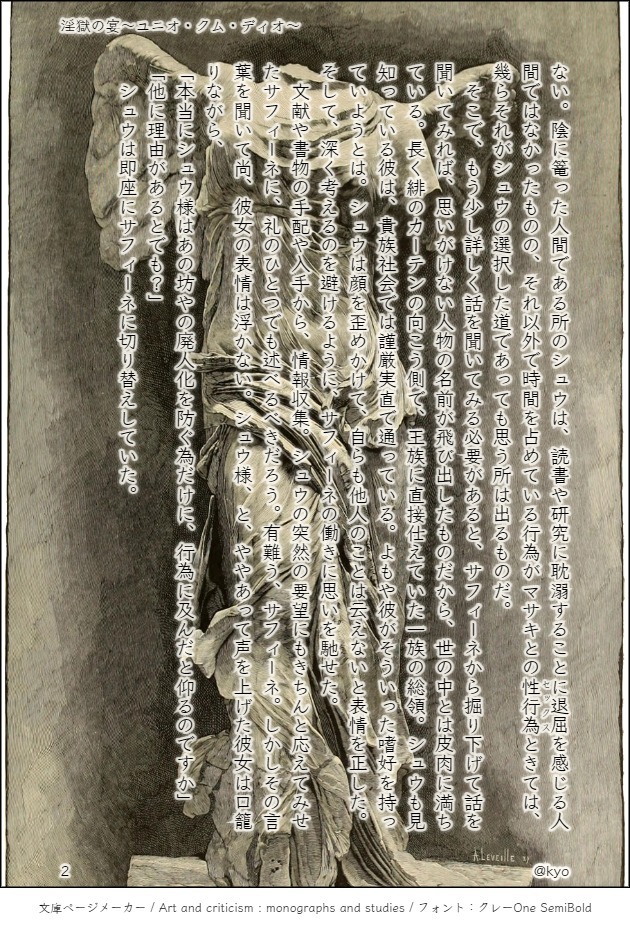 淫獄の宴～ユニオ・クム・ディオ～
ない。陰に篭った人間である所のシュウは、読書や研究に耽溺することに退屈を感じる人
間ではなかったものの、それ以外で時間を占めている行為がマサキとの性行為ときては、
セックス
幾らそれがシュウの選択した道であっても思う所は出るものだ。
そこで、もう少し詳しく話を聞いてみる必要があると、サフィーネから掘り下げて話を
聞いてみれば、思いがけない人物の名前が飛び出したものだから、世の中とは皮肉に満ち
ている。長く緋のカーテンの向こう側で、王族に直接仕えていた一族の総領。シュウも見
知っている彼は、貴族社会では謹厳実直で通っている。よもや彼がそういった嗜好を持っ
ていようとは。シュウは顔を歪めかけて、自らも他人のことは云えないと表情を正した。
そして、深く考えるのを避けるように、サフィーネの働きに思いを馳せた。
文献や書物の手配や入手から、情報収集。シュウの突然の要望にもきちんと応えてみせ
たサフィーネに、礼のひとつでも述べるべきだろう。有難う、サフィーネ。しかしその言
葉を聞いて尚、彼女の表情は浮かない。シュウ様、と、ややあって声を上げた彼女は口籠
りながら、
「本当にシュウ様はあの坊やの廃人化を防ぐ為だけに、行為に及んだと仰るのですか」
「他に理由があるとでも？」
シュウは即座にサフィーネに切り替えしていた。
A.LEVEILLÉ
2
@kyo
文庫ページメーカー / Art and criticism : monographs and studies / フォント：クレーOne SemiBold